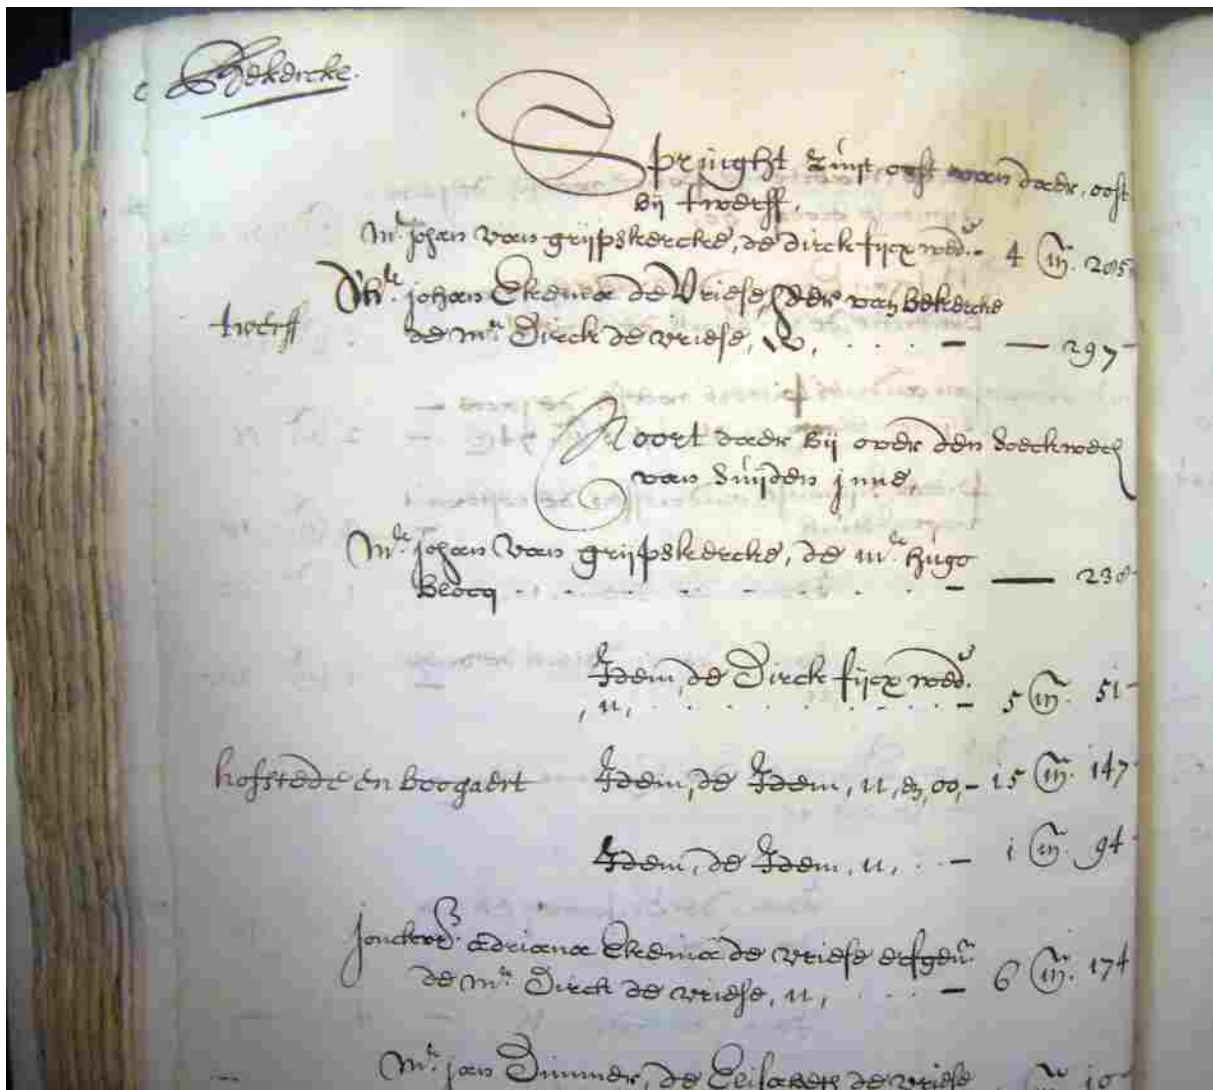 Bekercke.
Springht Zuijt oost waen daer, oost
bij twerff,
Mr. johan van grijpskercke, de dirck fijcx wed.e - 4 m. 285
twerff
Dhr. johan Ekema de Vriese, heer van Bekercke
de mr. Dirck de vriese, . . . . - — 297
Noort daer bij over den Boeckwech
van Suijden jnne,
Mr. johan van grijpskercke, de mr. Hugo
Blocq . . . . . . - — 238
Idem, de Dirck fijcx wed.e
, u, . . . . . . . - 5 m. 51
hofstede en boogaert
Idem, de Idem, u, en, oo, - 15 m. 147
Idem, de Idem, u, . . - 1 m. 94
jonckvr. adriana Ekema de vriese erfgen.
de mr. Dirck de vriese, u, . . . - 6 m. 174
Mr. jan Dimmer, de Elisabeth de vriese